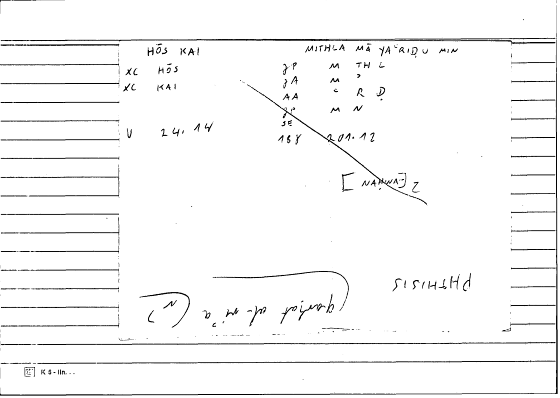 HŌS KAI MITHLA MĀ YAʿRIḌU MIN
XC HŌS ȝP M TH L
XC KAI ȝA M ʾ
AA ʿ R Ḍ
ȝP M N
SE
V 24.14 18ȝ 201.12
[NAḤWA-] 2
PHTHISIS
qarḥat al-
K 8 - lin...